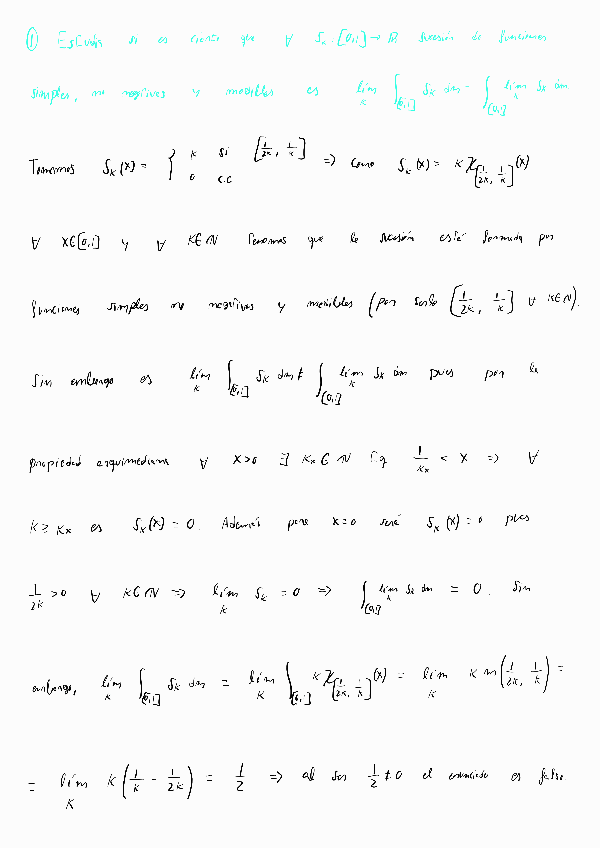 ① Estudia si es cierto que ∀ Sₖ: [0,1] → ℝ sucesión de funciones
simples, no negativas y medibles es lím_k ∫_[0,1] Sₖ dm = ∫_[0,1] lím_k Sₖ dm
Tomemos Sₖ(x) = { k si [1/2k, 1/k] ; 0 c.c ⇒ como Sₖ(x) = k χ_[1/2k, 1/k](x)
∀ x∈[0,1] y ∀ k∈ℕ tenemos que la sucesión está formada por
funciones simples no negativas y medibles (por serlo [1/2k, 1/k] ∀ k∈ℕ).
Sin embargo es lím_k ∫_[0,1] Sₖ dm ≠ ∫_[0,1] lím_k Sₖ dm pues por la
propiedad arquimediana ∀ x>0 ∃ kₓ ∈ ℕ t.q 1/kₓ < x ⇒ ∀
k ≥ kₓ es Sₖ(x) = 0. Además para x=0 será Sₖ(x) = 0 pues
1/2k > 0 ∀ k∈ℕ ⇒ lím_k Sₖ = 0 ⇒ ∫_[0,1] lím_k Sₖ dm = 0. Sin
embargo, lím_k ∫_[0,1] Sₖ dm = lím_k ∫_[0,1] k χ_[1/2k, 1/k](x) = lím_k k m(1/2k, 1/k) =
= lím_k k(1/k - 1/2k) = 1/2 ⇒ al ser 1/2 ≠ 0 el enunciado es falso.